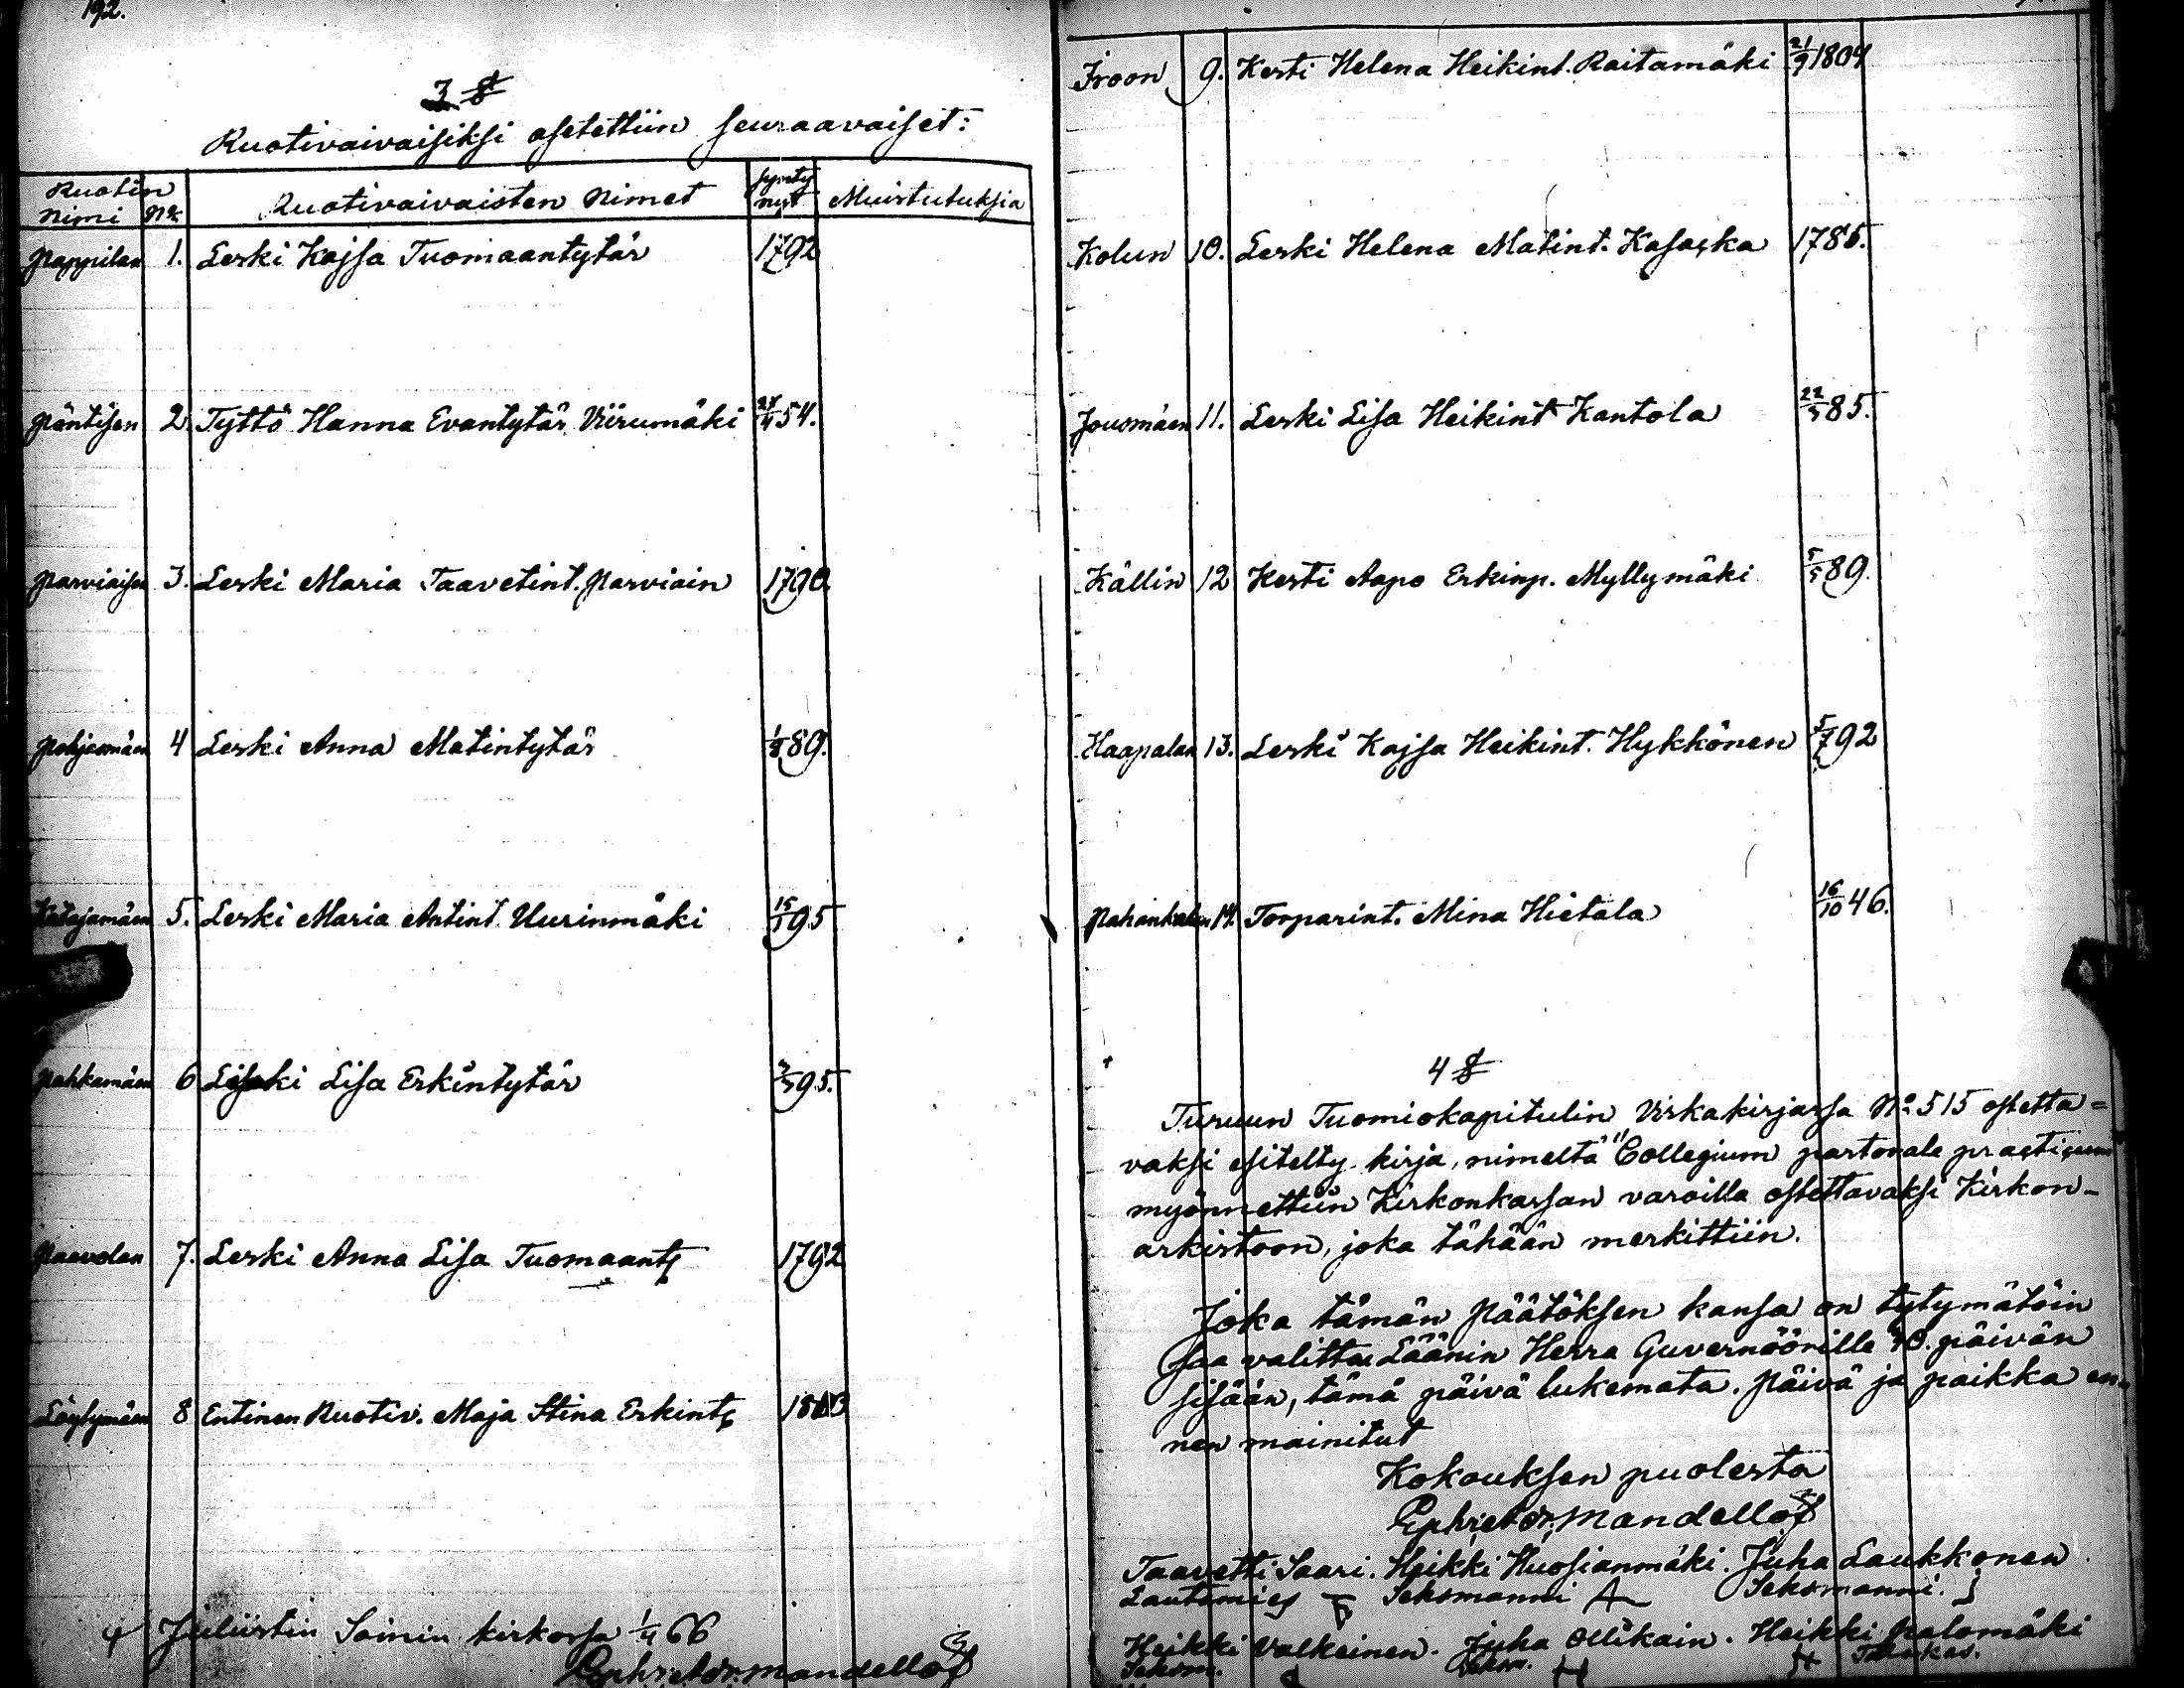 192.
3 §
Ruotivaivaisiksi asetettiin seuraavaiset:
Ruotin Nimi No. Ruotivaivaisten Nimet synty nyt Muistutuksia
Pappilan 1. Leski Kajsa Tuomaantytär 1792
Päntisen 2. Tyttö Hanna Evantytär Viirumäki 54.
Parviaisen 3. Leski Maria Taavetint. Parviain 1790.
Pohjasmäen 4 Leski Anna Matintytär 89.
Katajamäen 5. Leski Maria Antint. Uurinmäki 15/1 95
Pahkamäen 6 Leski Lisa Erkintytär 95.
Paavolan 7. Leski Anna Lisa Tuomaant 1792
Löytymäen 8 Entinen Ruotiv. Maja Stina Erkint
Julistin Soinin kirkossa 1/4 66
Ephr. Mandellöf
Iroon 9. Kesti Helena Heikint. Raitamäki 21/9 1804
Kolun 10. Leski Helena Matint. Kasaska 1785.
Jousmäen 11. Leski Lisa Heikint Kantola 22/5 85.
Källin 12 Kesti Aapo Erkinp. Myllymäki 5/5 89.
Haapalan 13. Leski Kajsa Heikint. Hykkönen 5/7 92
14. Torparint. Mina Hietala 16/10 46.
4 §
Turuun Tuomiokapitulin Virkakirjassa No. 515 ostetta=
vaksi esitelty kirja, nimeltä "Collegium pastorale practicum
myönnettiin Kirkonkassan varoilla ostettavaksi Kirkon-
arkistoon, joka tähään merkittiin.
Joka tämän Päätöksen kansa on tytymätöin
saa valittaa Läänin Herra Guvernöörille 30. päivän
sisään, tämä päivä lukemata. Päivä ja paikka en-
nen mainitut
Kokouksen puolesta
Ephr. Mandellöf
Taavetti Saari. Heikki Huosianmäki. Juha Laukkonen
Lautamies Seksmanni Seksmanni.
Heikki Valkeinen. Juha Ollikain. Heikki Palomäki
Seksm. Seksm. Talokas.